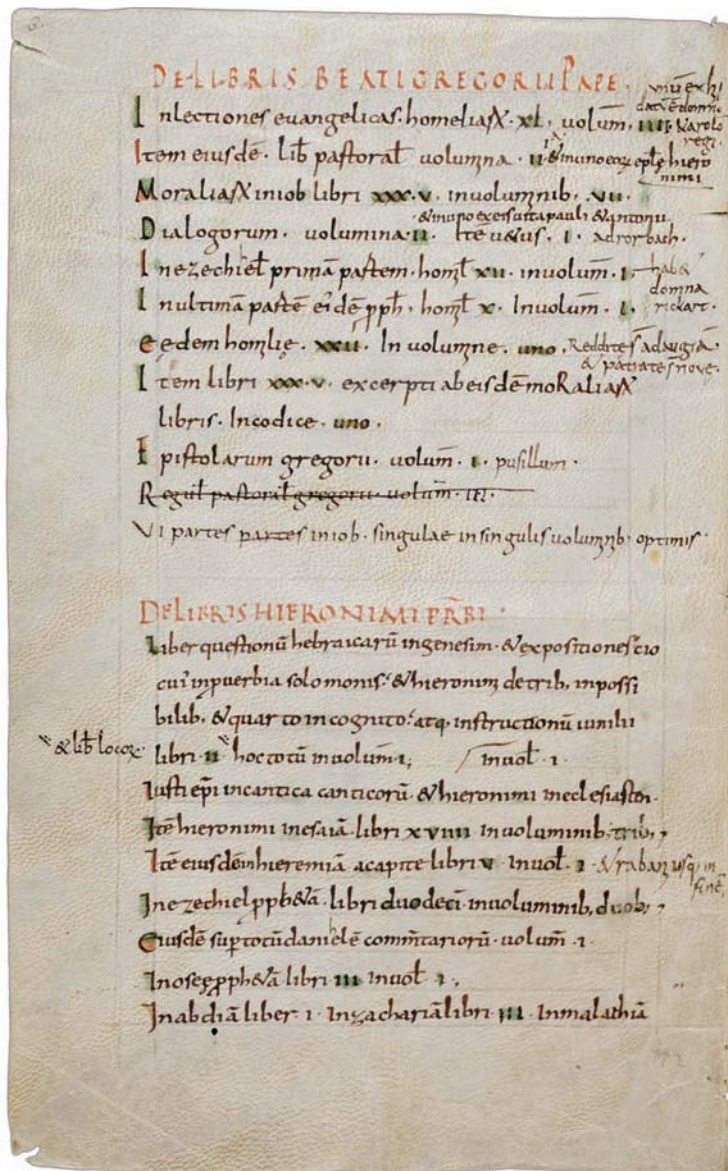 DE LIBRIS BEATI GREGORII PAPE.
In lectiones euangelicas. homeliaꝝ. xl. uolum̄. iiii.
unū exh̄
dat̄ ē domno
Karolo
regi.
Item eiusdē. lib̄ pastoral̄ uolumina. ii. & in uno eorū epl̄ę hiero
nimi
Moraliaꝝ in iob libri xxx.v. in uoluminib. vii.
& in uno ex eis uita pauli & antonii
Dialogorum. uolumina. ii. Itē u&us. i. ad rorbach.
In ezechiel̄ primā partem. homl̄ xii. in uolum̄. i.
hab&
domna
rickart.
In ultimā partē eiꝰdē ꝓph̄. homl̄ x. In uolum̄. i.
eędem homlię. xxii. In uolumine. uno. Reddite s̄ ad augiā
& patratę s̄ nouę.
Item libri xxx.v. excerpti ab eisdē moRaliaꝝ
libris. In codice. uno.
Epistolarum gregorii. uolum̄. i. pusillum.
Regul̄ pastoral̄ gregorii. uolum̄. iii.
VI partes partes in iob. singulae in singulis uoluminib. optimis
DE LIBRIS HIERONIMI PR̄BI.
Liber questionū hebraicarū in genesim. & expositiones cio
cuiꝰ in ꝓuerbia solomonis. & hieronimi de trib. inpossi
bilib. & quarto incognito. atq. instructionū iunilii
& lib̄ locoꝝ
libri. ii hoc totū in uolum̄ i. in uol̄. i.
Iusti ep̄i in cantica canticorū. & hieronimi in eclesiasten.
Itē hieronimi in esaiā. libri xviiii in uoluminib. trib.
Itē eiusdē in hieremiā a capite libri v In uol̄. i. & raban usq. in
finē
In ezechiel ꝓph&ā. libri duodecī in uoluminib. duob.
Eiusdē sup totū danielē comm̄tariorū. uolum̄. i.
In oseę ꝓph&ā libri iii In uol̄ i.
In abdiā liber. i. In zachariā libri. iii. In malachiā